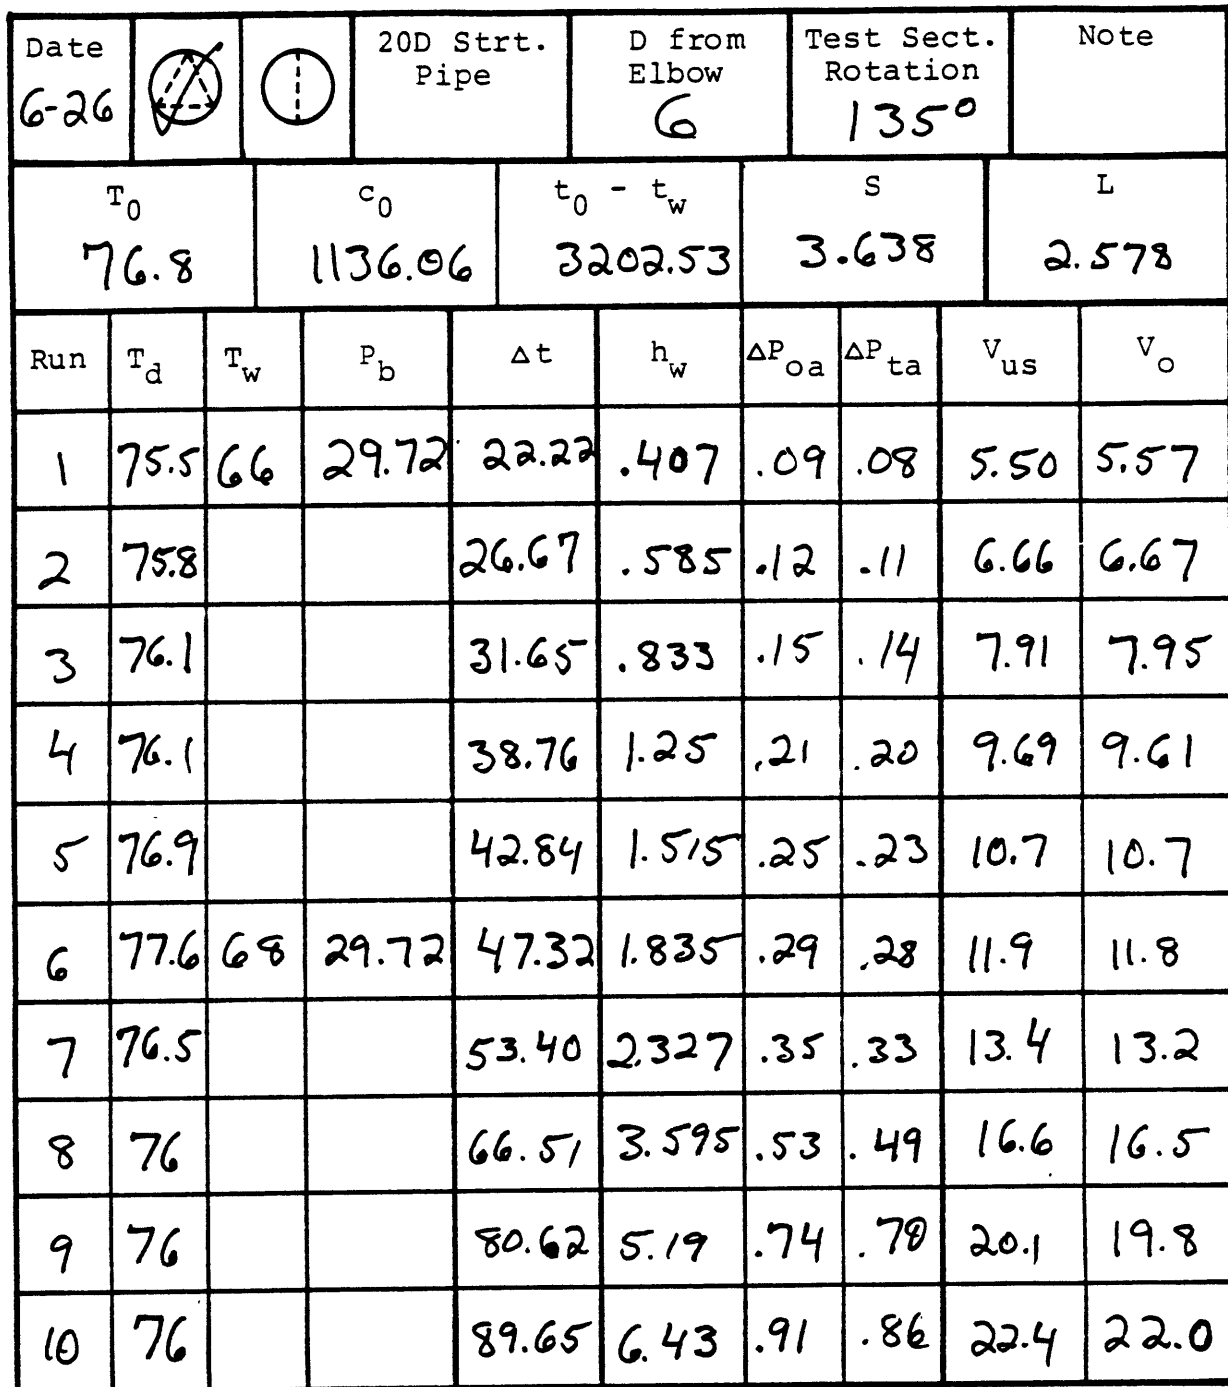 Date 20D Strt. D from Test Sect. Note
Pipe Elbow Rotation
6-26 6 135°
T0 c0 t0 - tw S L
76.8 1136.06 3202.53 3.638 2.578
Run Td Tw Pb Δt hw ΔPoa ΔPta Vus Vo
1 75.5 66 29.72 22.22 .407 .09 .08 5.50 5.57
2 75.8 26.67 .585 .12 .11 6.66 6.67
3 76.1 31.65 .833 .15 .14 7.91 7.95
4 76.1 38.76 1.25 .21 .20 9.69 9.61
5 76.9 42.84 1.515 .25 .23 10.7 10.7
6 77.6 68 29.72 47.32 1.835 .29 .28 11.9 11.8
7 76.5 53.40 2.327 .35 .33 13.4 13.2
8 76 66.51 3.595 .53 .49 16.6 16.5
9 76 80.62 5.19 .74 .70 20.1 19.8
10 76 89.65 6.43 .91 .86 22.4 22.0